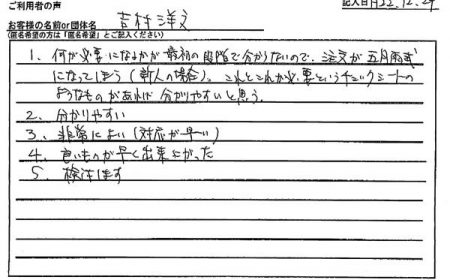 ご利用者の声
記入日H22.12.29
お客様の名前or団体名 吉村洋文
(匿名希望の方は「匿名希望」とご記入ください)
1. 何が必要になるかが最初の段階で分からないので、注文が五月雨式
になってしまう(新人の場合)。これとこれが必要というチェックシートの
ようなものがあれば分かりやすいと思う。
2. 分かりやすい
3. 非常によい(対応が早い)
4. 良いものが早く出来上がった
5. 検討します